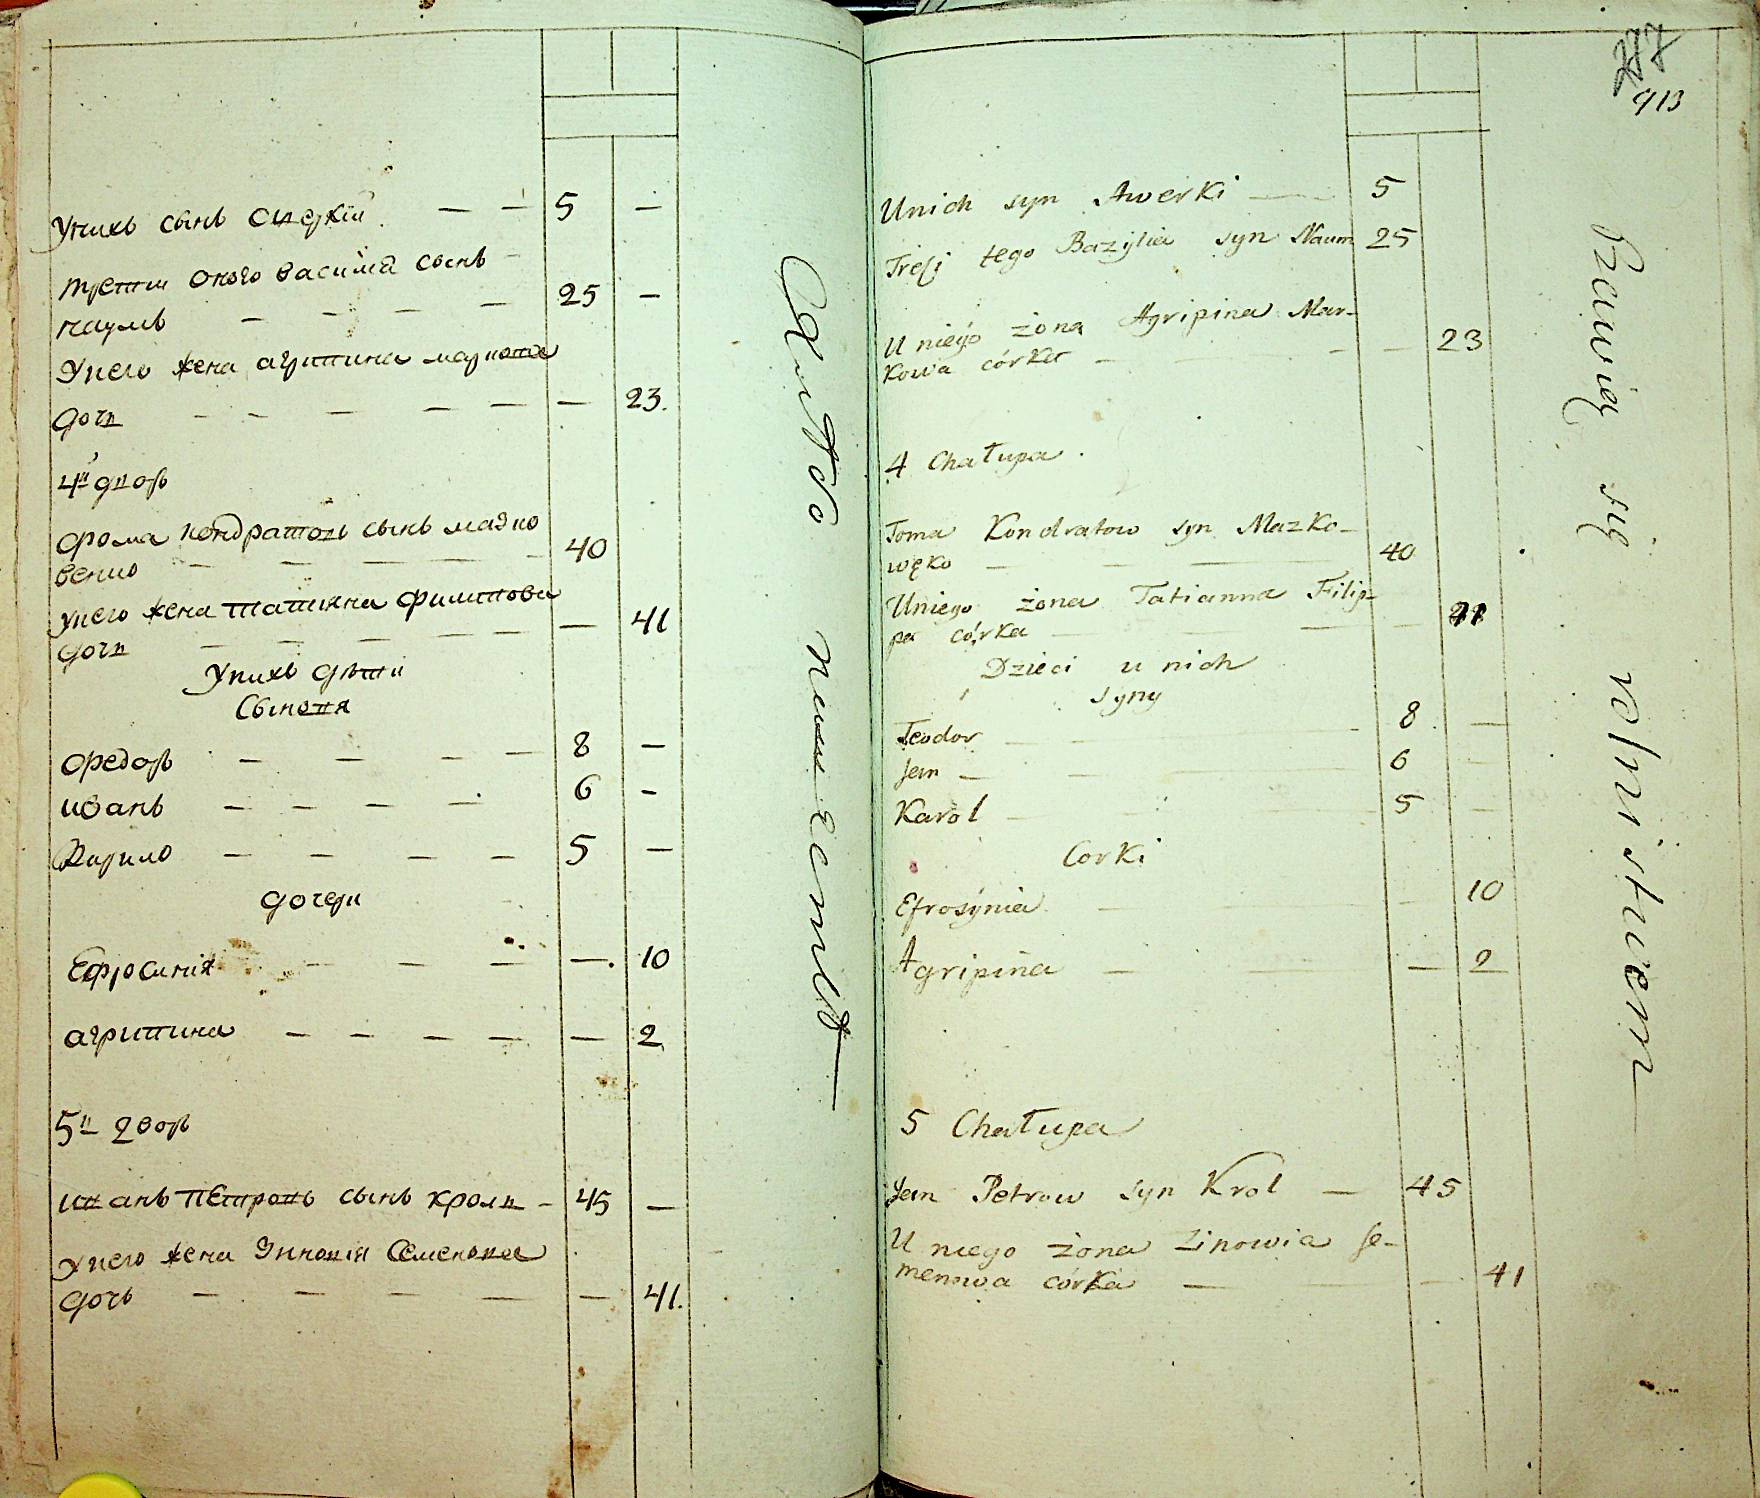 Унихъ сынъ Оверкій — — 5 —
третій оного василія сынъ —
наумъ — — — — 25 —
Унего жена агрипина маркова
дочь — — — — — — 23.
4й дворъ
фома кондратовъ сынъ мазко
венко — — — — 40
унего жена татияна филипова
дочь — — — — — — 41
Унихъ дѣти
Сыновя
федоръ — — — — 8 —
иванъ — — — — 6 —
Кирило — — — — 5 —
дочери
Ефросинія — — — —. 10
агрипина — — — — — 2
5й дворъ
иванъ петровъ сынъ кроль — 45 —
унего жена Зиновія Семенова
дочь — — — — — 41.
277
913
Unich syn Awerki — — 5
Treji tego Bazylia syn Naum 25
U niego żona Agripina Mar-
kowa córka — — — 23
4 Chałupa.
Toma Kondratow syn Mazko-
węko — — — 40
Uniego żona Tatianna Filip-
pa córka — — — 41
Dzieci u nich
syny
Teodor — — — 8 —
Jan — — — 6 —
Karol — — — 5 —
Corki
Efrosynia — — — 10
Agripina — — — 2
5 Chałupa
Jan Petrow syn Krol — 45
U niego żona Zinowia Se-
menowa córka — — — 41
Bawią się rolnistwem